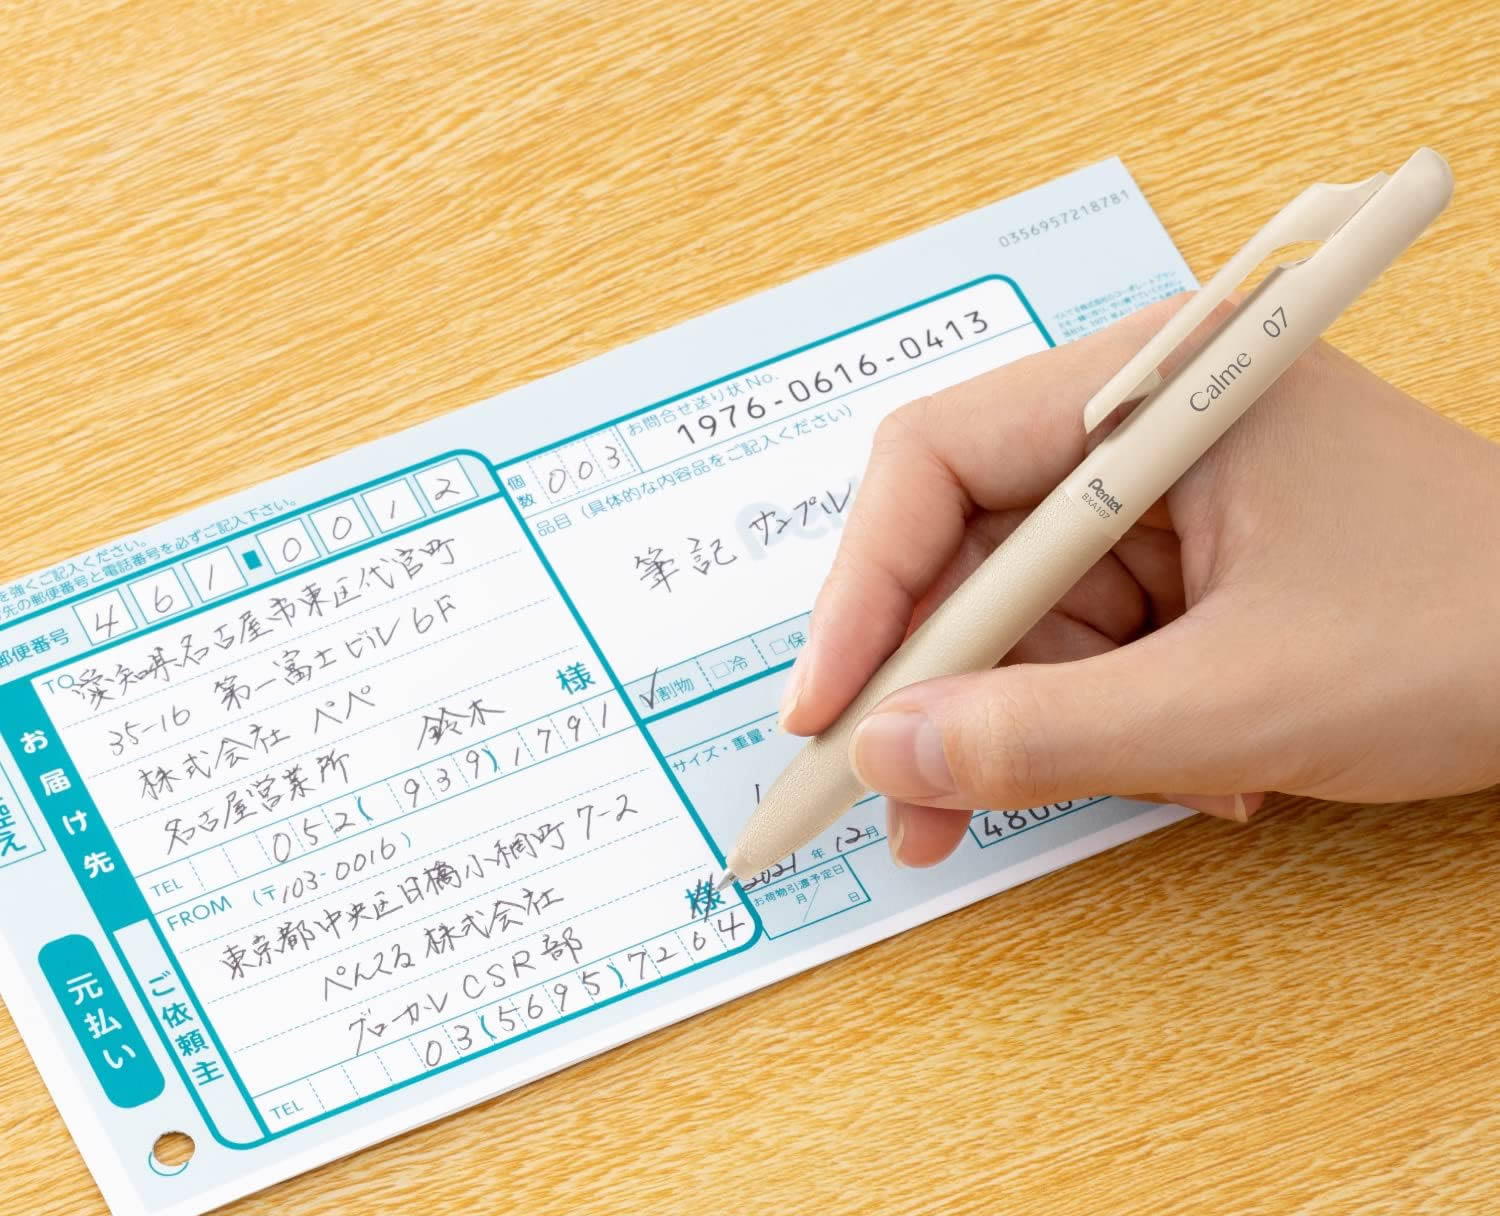 0356957218781
お問合せ送り状No.
1976-0616-0413
個数 003
品目（具体的な内容品をご記入ください）
筆記 サンプル
割物 □冷 □保
サイズ・重量・
2021 年 12月
お荷物引渡予定日
月 日
を強くご記入ください。
先の郵便番号と電話番号を必ずご記入下さい。
郵便番号 461 0012
お届け先
TO
愛知県名古屋市東区代官町
35-16 第一富士ビル6F
株式会社 ペペ
名古屋営業所 鈴木 様
TEL 052(939)1791
ご依頼主
FROM （〒103-0016）
東京都中央区日本橋小網町 7-2
ぺんてる 株式会社
グローカル CSR部 様
TEL 03(5695)7264
元払い
Calme 07
Pentel
BXA107